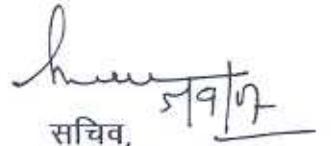 5/9/07
सचिव,